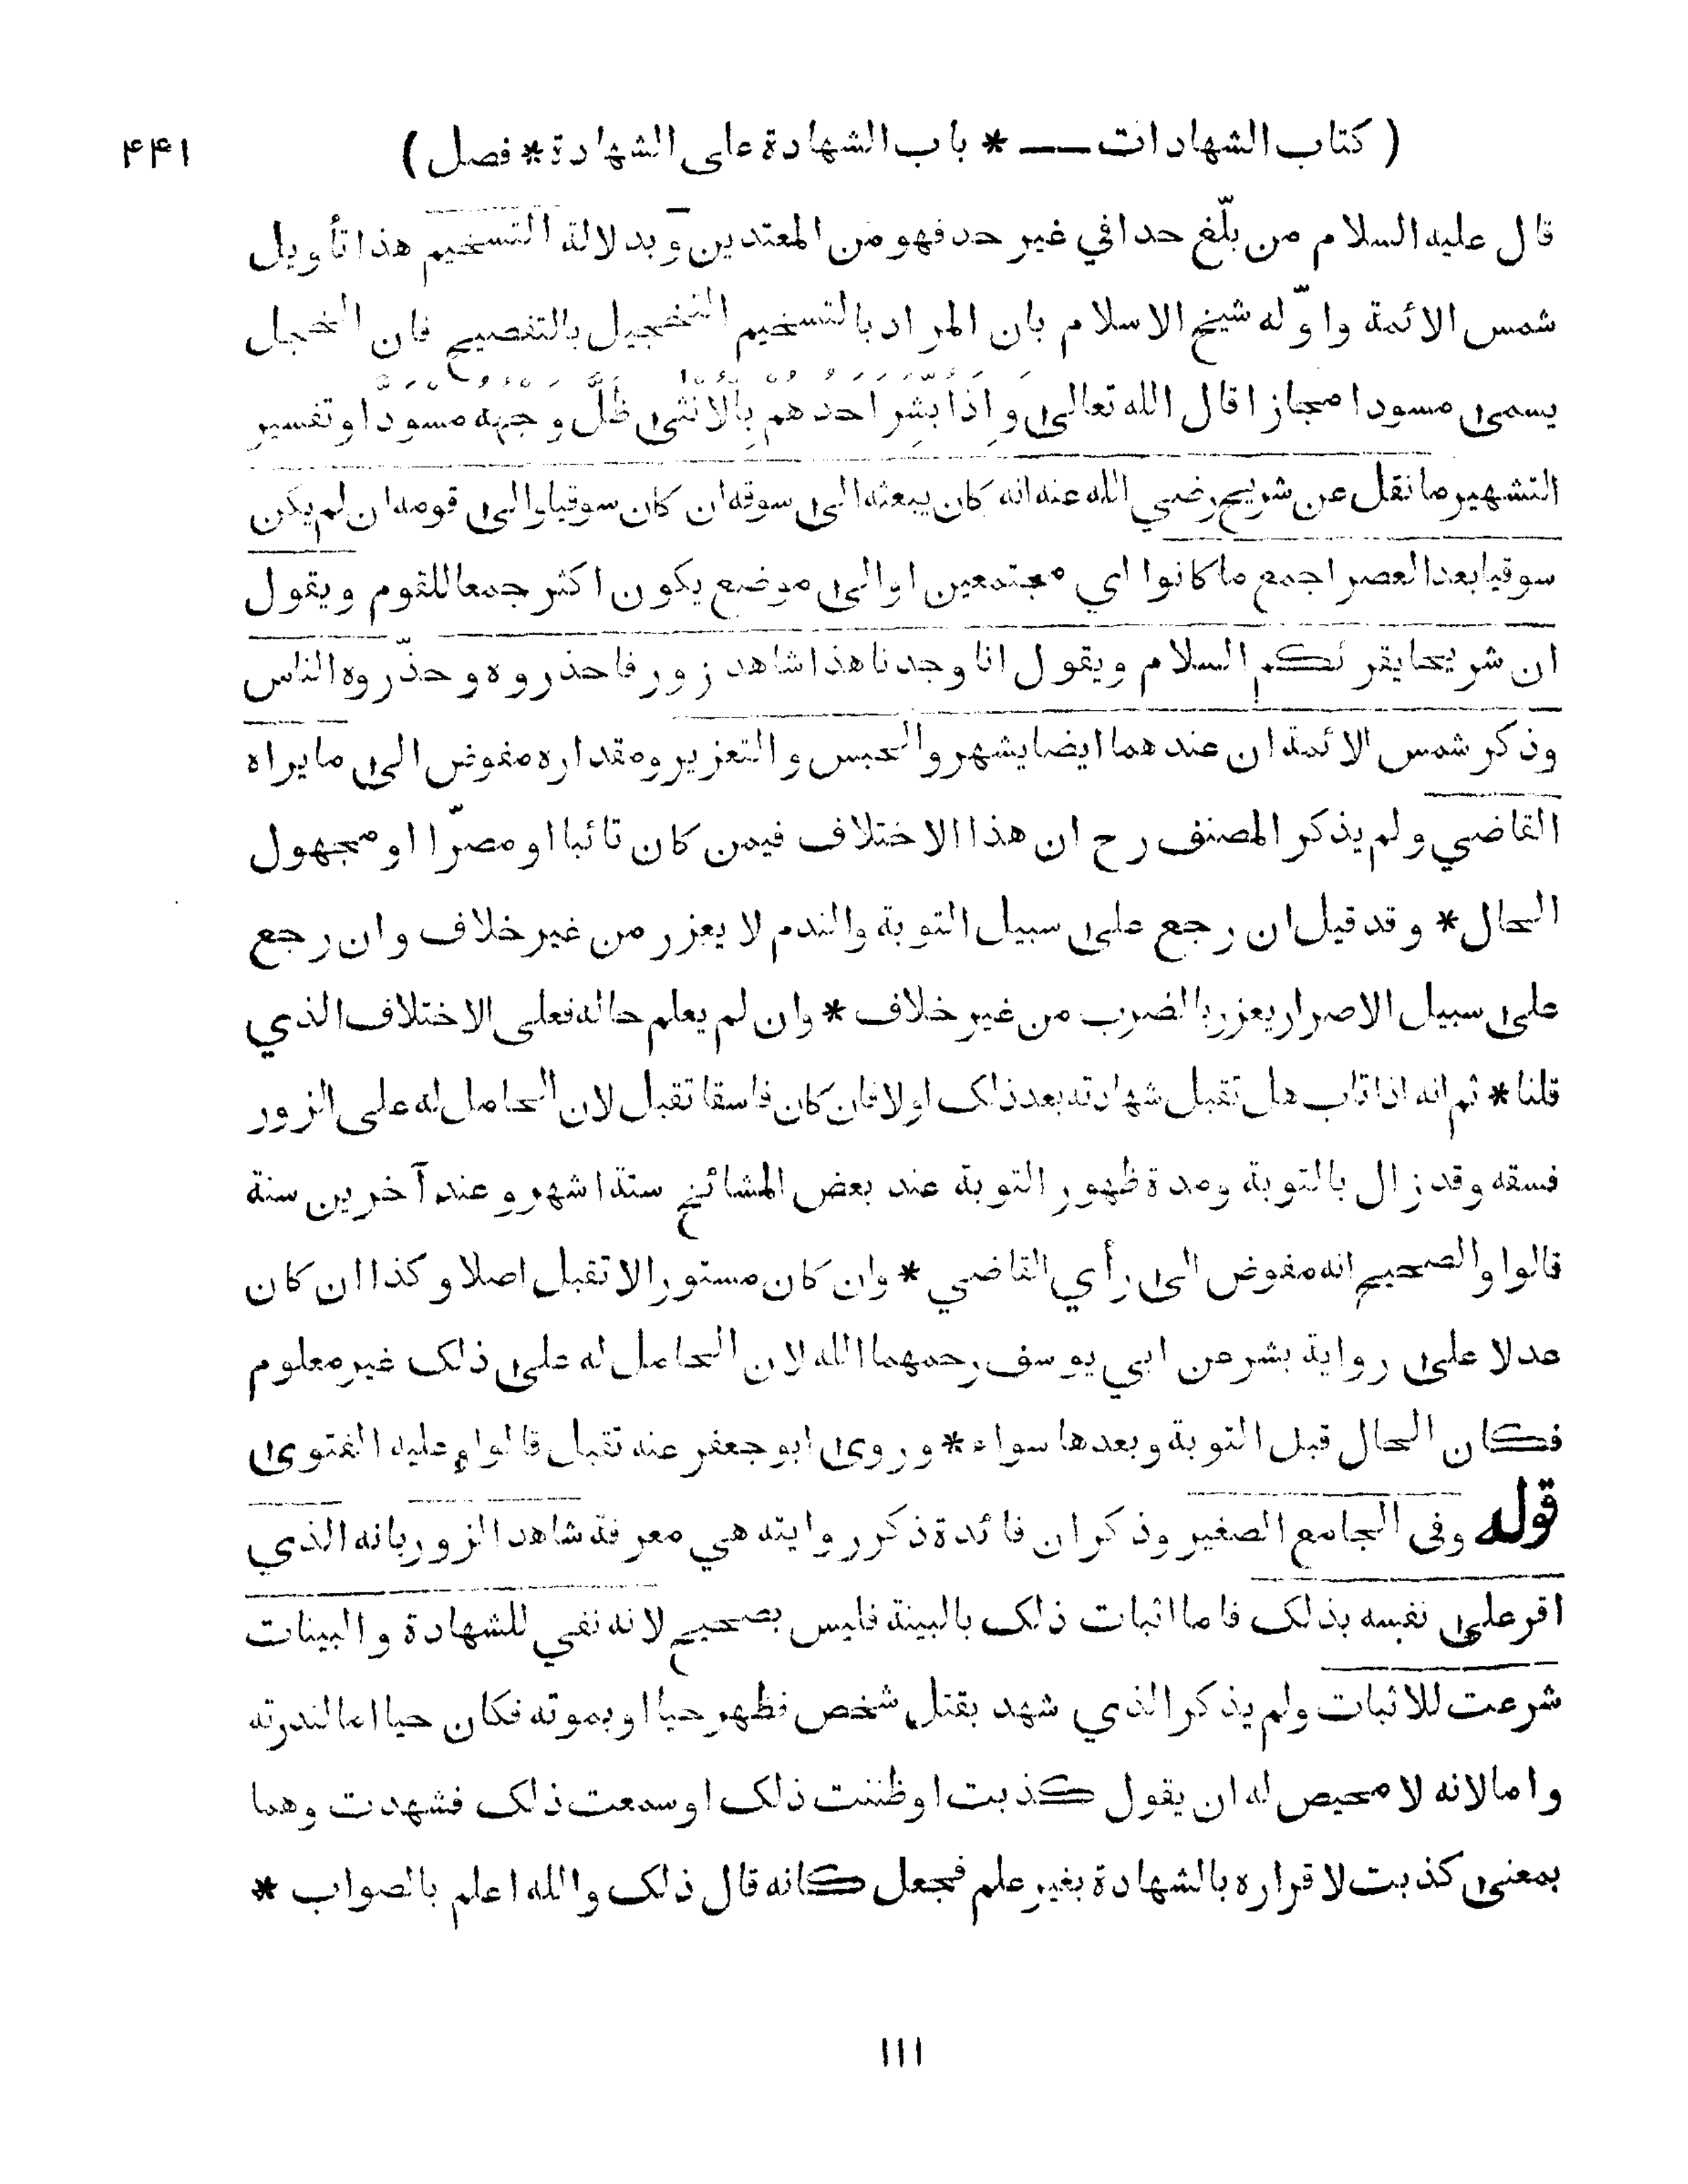 ( كتاب الشهادات — * باب الشهادة على الشهادة * فصل )
۴۴۱
قال عليه السلام من بلّغ حدا في غير حد فهو من المعتدين و بدلالة التسخيم هذا تأويل
شمس الائمة واوّله شيخ الاسلام بان المراد بالتسخيم التخجيل بالتفصيح فان الخجل
يسمى مسودا مجازا قال الله تعالى وَ اِذَا بُشِّرَ اَحَدُهُمْ بِالْاُنْثٰى ظَلَّ وَجْهُهٗ مُسْوَدًّا وتفسير
التشهير ما نقل عن شريح رضي الله عنه انه كان يبعثه الى سوقه ان كان سوقيا والى قومه ان لم يكن
سوقيا بعد العصر اجمع ما كانوا اي مجتمعين او الى موضع يكون اكثر جمعا للقوم ويقول
ان شريحا يقرئكم السلام ويقول انا وجدنا هذا شاهد زور فاحذروه وحذّروه الناس
وذكر شمس الائمة ان عندهما ايضا يشهر والحبس والتعزير ومقداره مفوض الى ما يراه
القاضي ولم يذكر المصنف رح ان هذا الاختلاف فيمن كان تائبا او مصرّا او مجهول
الحال * وقد قيل ان رجع على سبيل التوبة والندم لا يعزر من غير خلاف وان رجع
على سبيل الاصرار يعزر بالضرب من غير خلاف * وان لم يعلم حاله فعلى الاختلاف الذي
قلنا * ثم انه اذا تاب هل تقبل شهادته بعد ذلك او لا فان كان فاسقا تقبل لان الحامل له على الزور
فسقه وقد زال بالتوبة ومدة ظهور التوبة عند بعض المشائخ ستة اشهر وعند آخرين سنة
قالوا والصحيح انه مفوض الى رأي القاضي * وان كان مستورا لا تقبل اصلا وكذا ان كان
عدلا على رواية بشر عن ابي يوسف رحمهما الله لان الحامل له على ذلك غير معلوم
فكان الحال قبل التوبة وبعدها سواء * وروى ابو جعفر عنه تقبل قالوا وعليه الفتوى
قوله وفى الجامع الصغير وذكر ان فائدة ذكر روايته هي معرفة شاهد الزور بانه الذي
اقر على نفسه بذلك فاما اثبات ذلك بالبينة فليس بصحيح لانه نفي للشهادة والبينات
شرعت للاثبات ولم يذكر الذي شهد بقتل شخص فظهر حيا او بموته فكان حيا اما لندرته
واما لانه لا محيص له ان يقول كذبت او ظننت ذلك او سمعت ذلك فشهدت وهما
بمعنى كذبت لاقراره بالشهادة بغير علم فجعل كانه قال ذلك والله اعلم بالصواب *
ااا